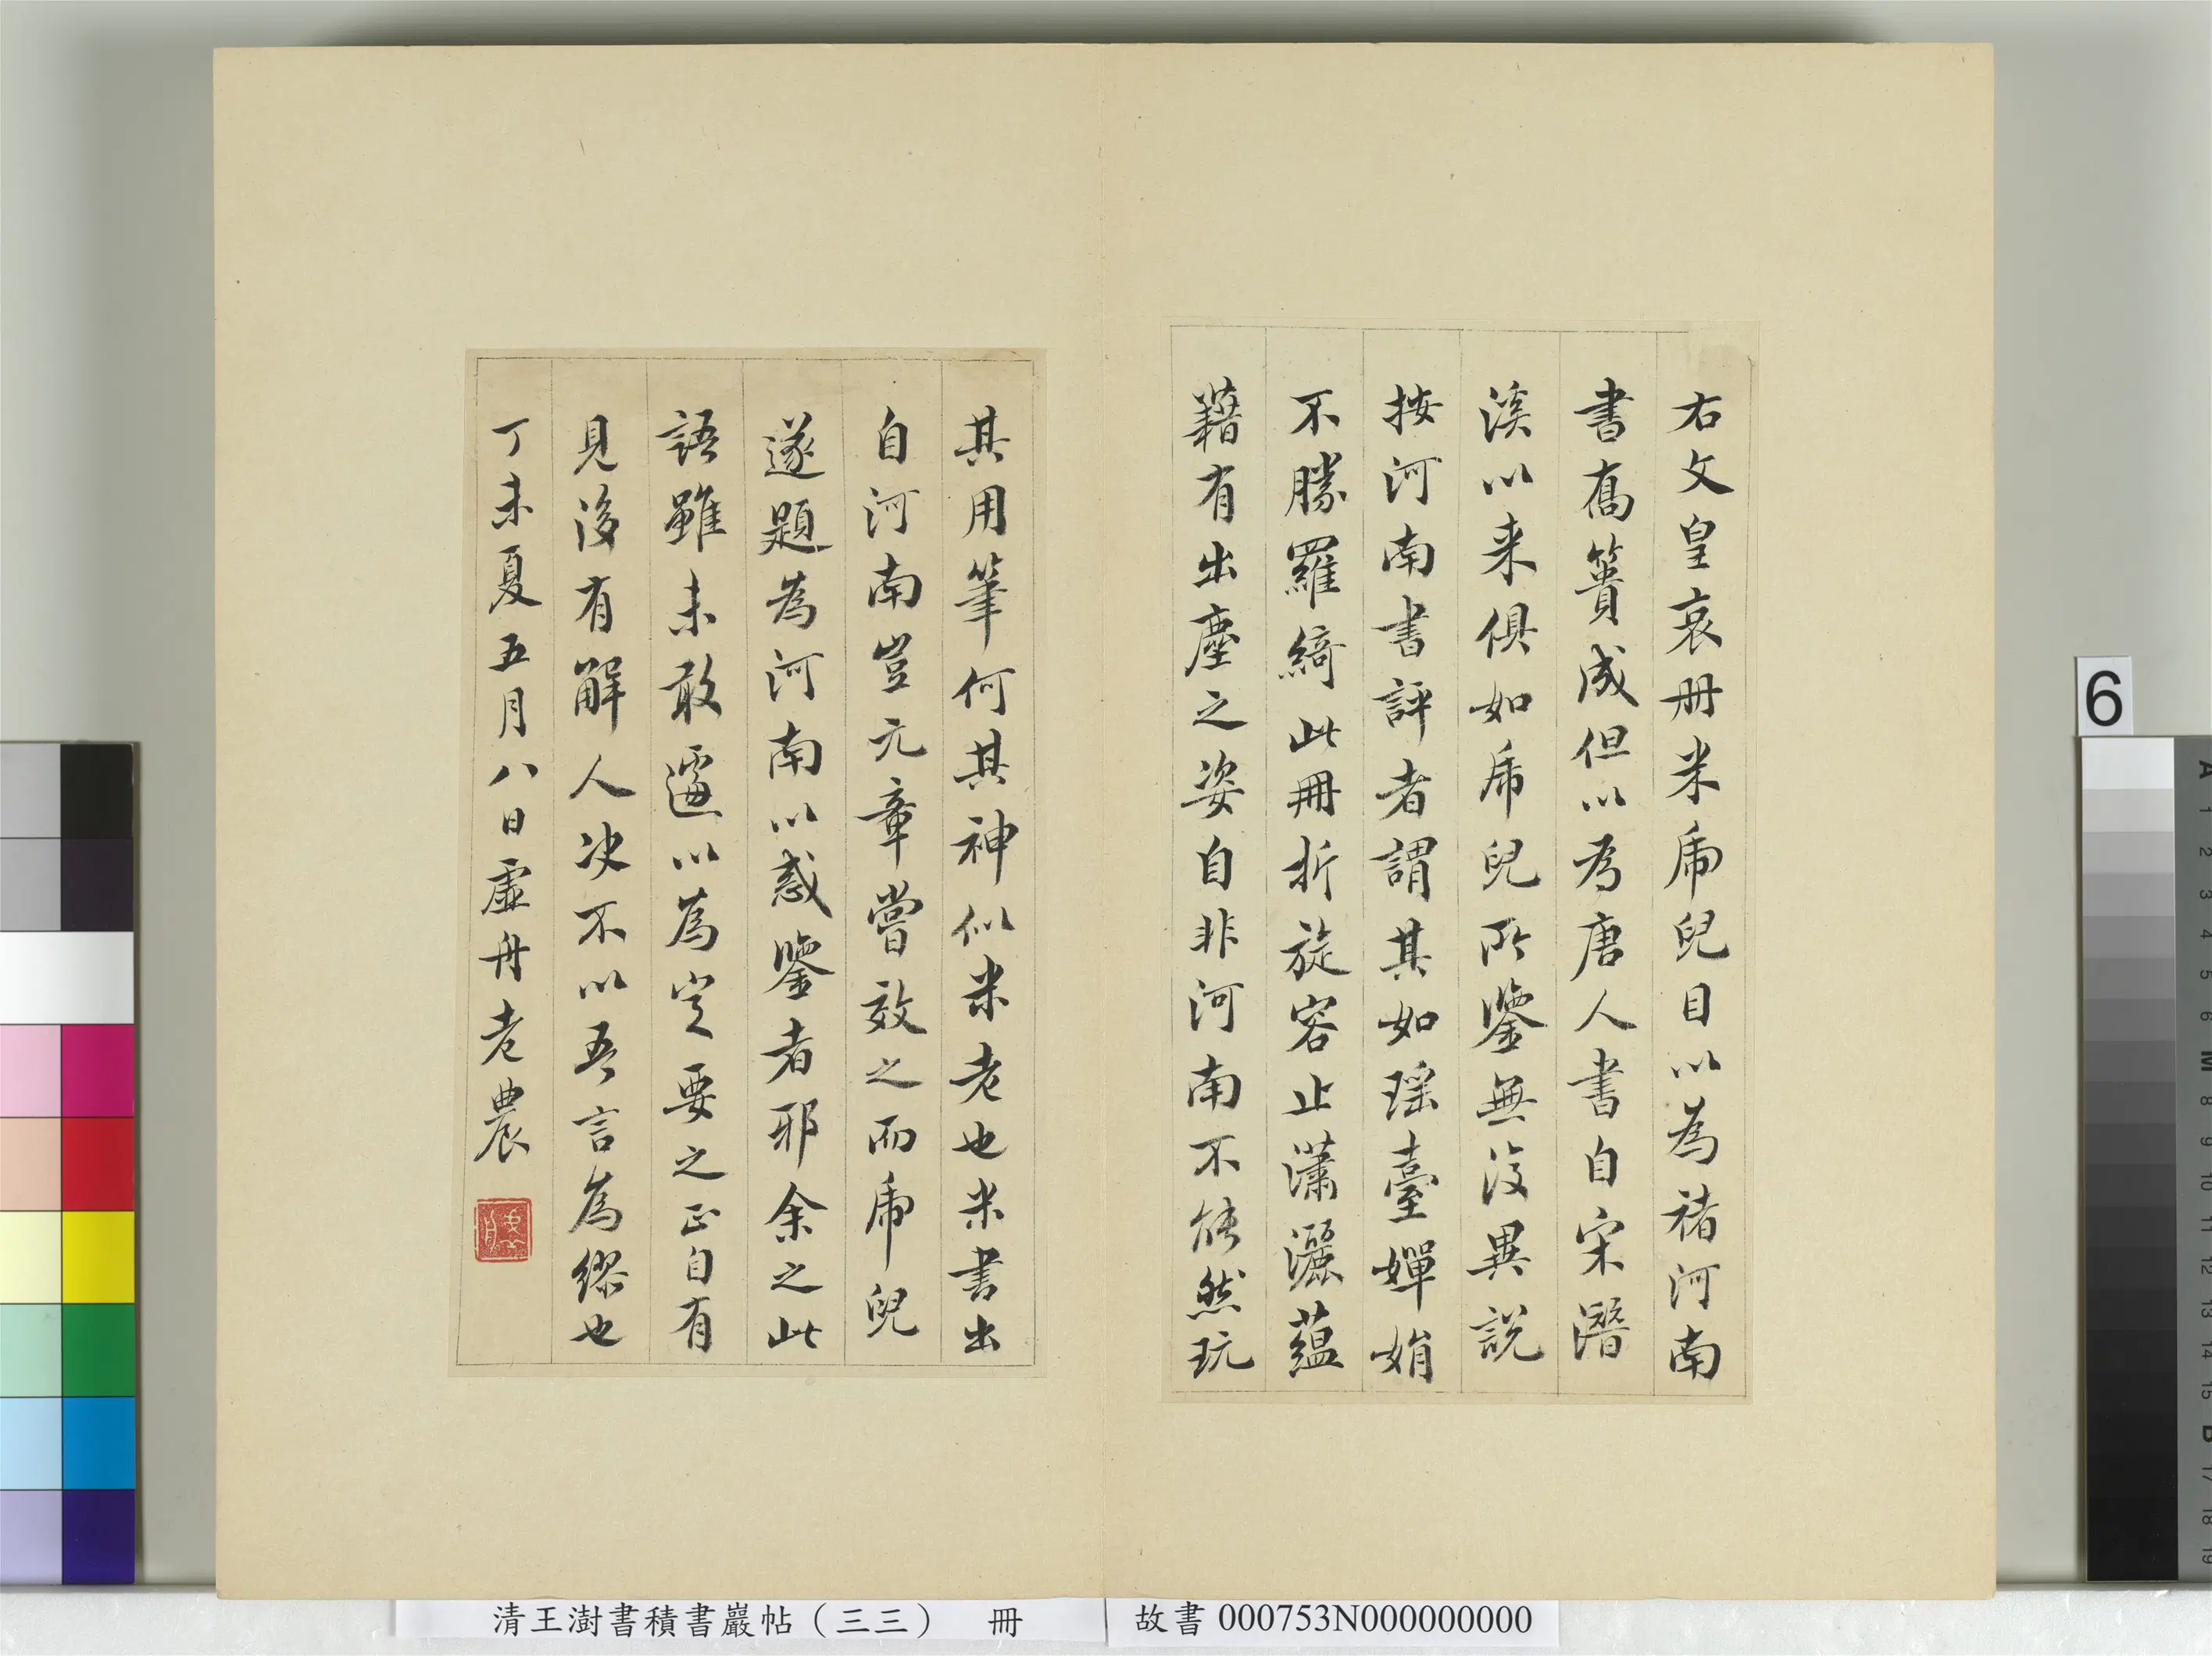 右文皇哀册米虎兒目以為褚河南
書喬簣成但以為唐人書自宋潛
溪以来俱如虎兒所鑒無没異説
按河南書評者謂其如瑶臺嬋娟
不勝羅綺此冊折旋容止瀟灑蘊
藉有出塵之姿自非河南不能然玩
其用筆何其神似米老也米書出
自河南豈元章嘗效之而虎兒
遂題為河南以惑鑒者邪余之此
語雖未敢遽以為定要之正自有
見後有解人决不以吾言為繆也
丁未夏五月八日虛舟老農
清王澍書積書巖帖（三三） 冊
故書 000753N000000000
6
A 1 2 3 4 5 6 M 8 9 10 11 12 13 14 15 B 17 18 19